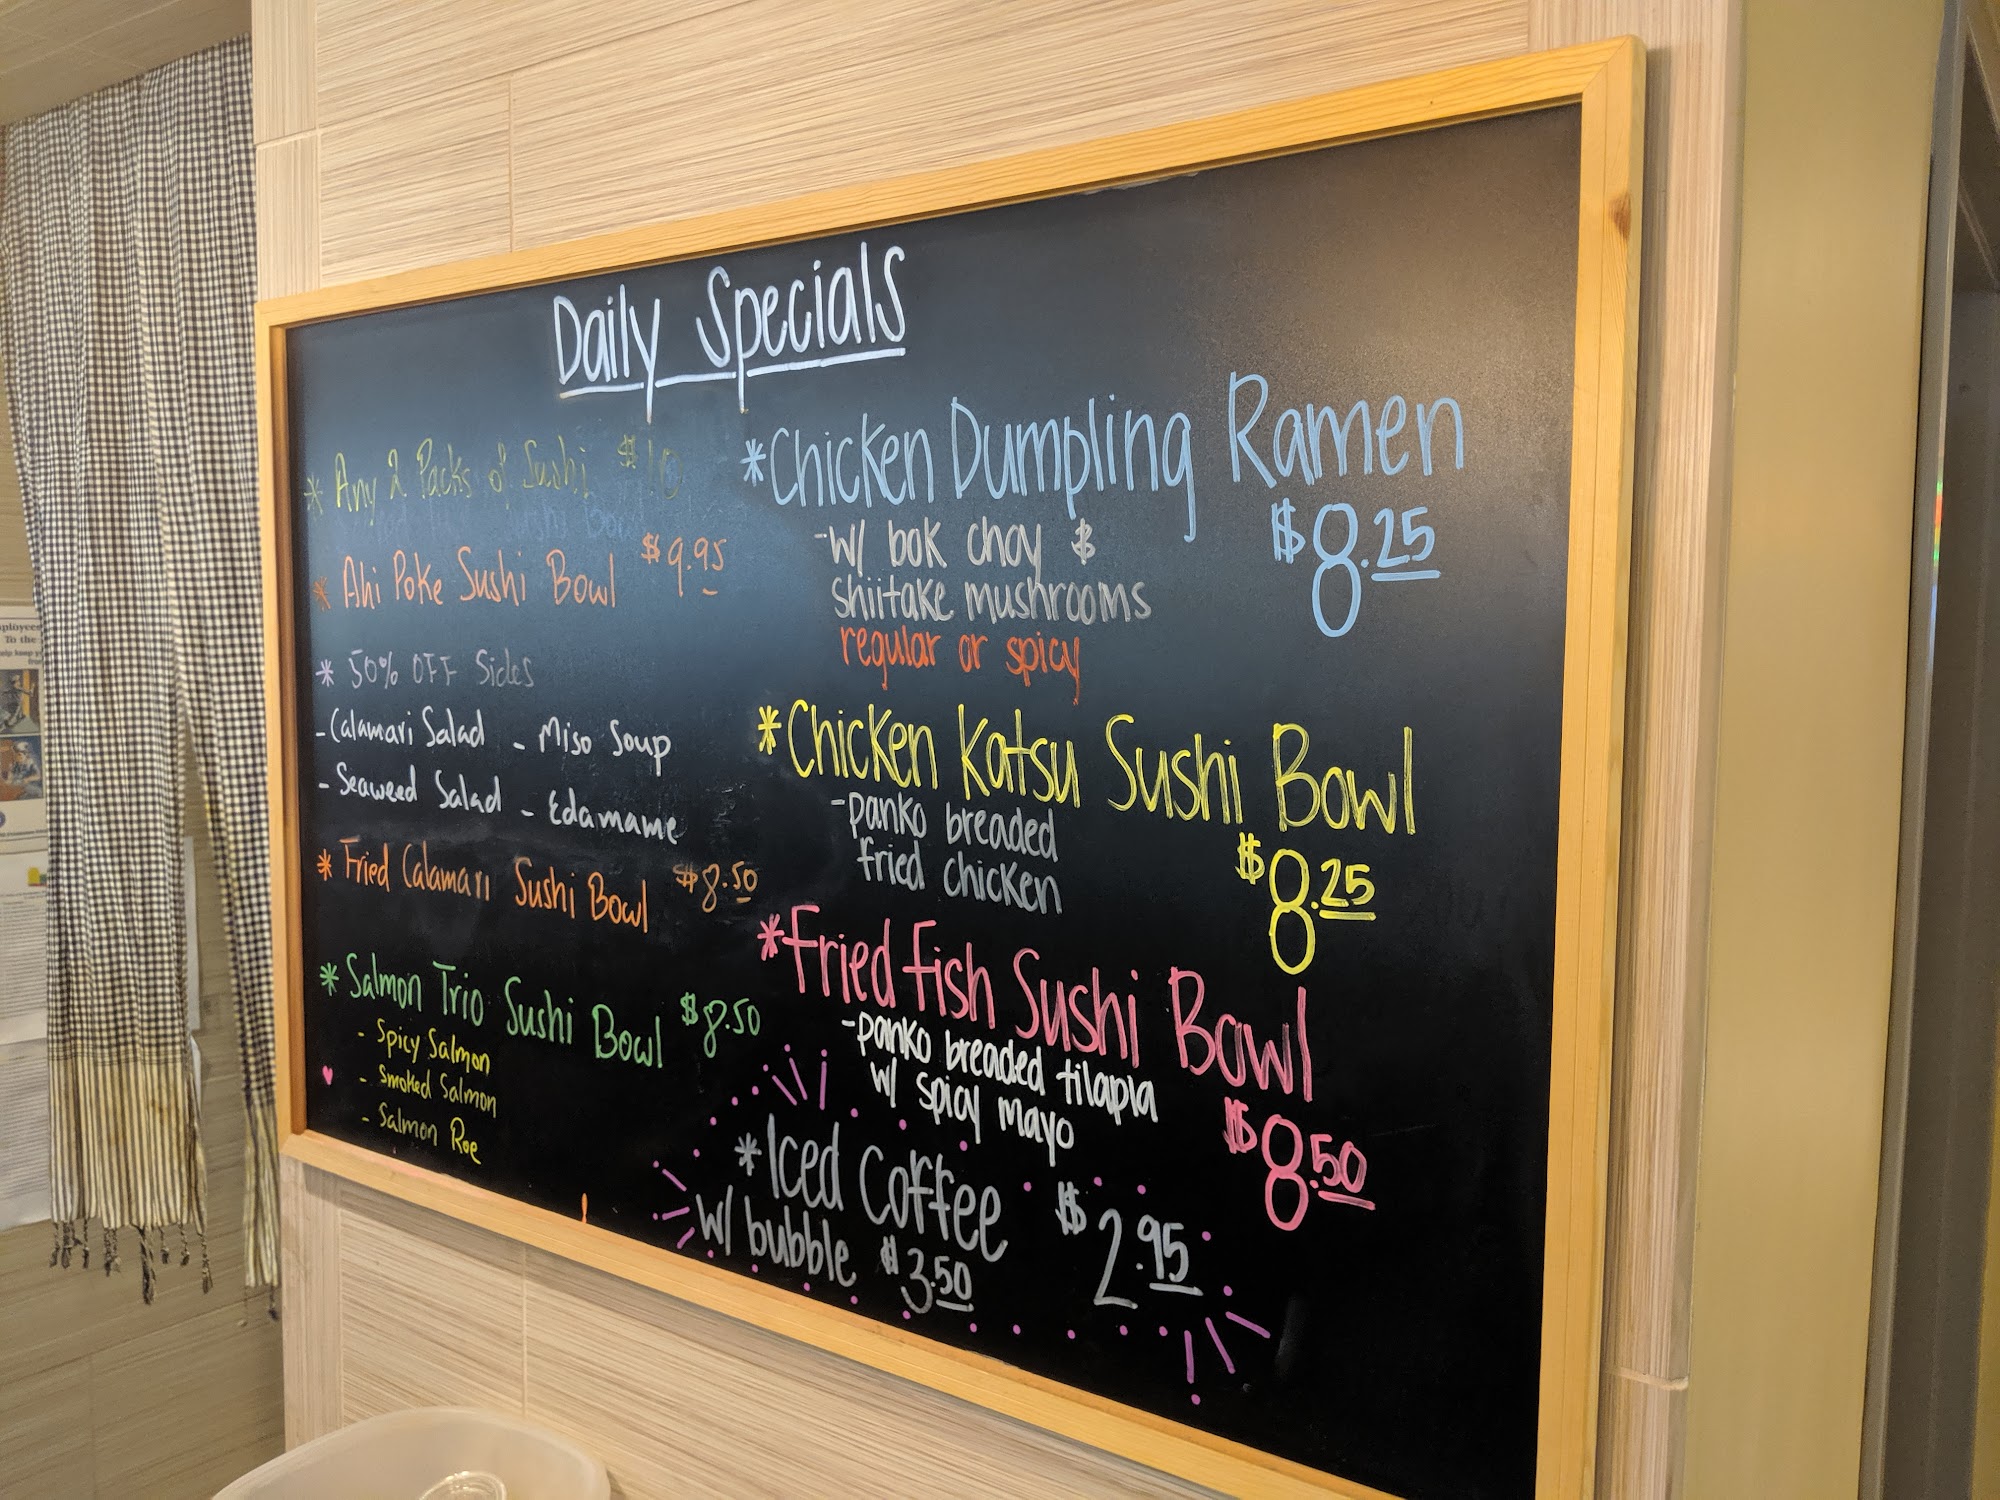 Daily Specials
* Any 2 Packs of Sushi $10
* Ahi Poke Sushi Bowl $9.95
* 50% OFF Sides
- Calamari Salad - Miso Soup
- Seaweed Salad - Edamame
* Fried Calamari Sushi Bowl $8.50
* Salmon Trio Sushi Bowl $8.50
- Spicy Salmon
- Smoked Salmon
- Salmon Roe
* Chicken Dumpling Ramen
$8.25
- w/ bok choy &
shiitake mushrooms
regular or spicy
* Chicken Katsu Sushi Bowl
- panko breaded
fried chicken
$8.25
* Fried Fish Sushi Bowl
- panko breaded tilapia
w/ spicy mayo
$8.50
* Iced Coffee $2.95
w/ bubble $3.50
To the